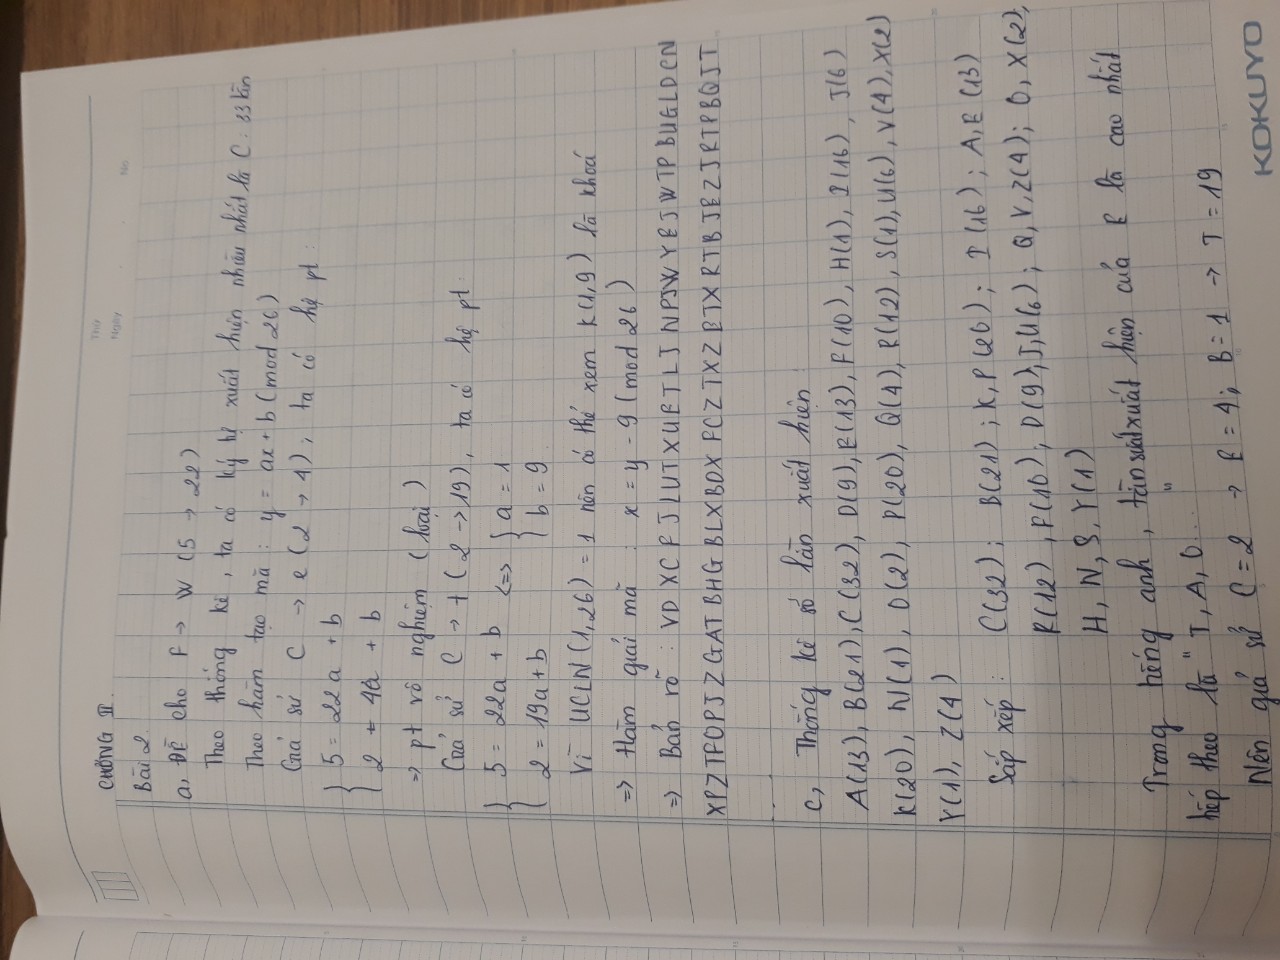 Thứ
Ngày
No.
CHƯƠNG II.
Bài 2.
a, Đề cho F → W (5 → 22)
Theo thống kê, ta có ký hệ xuất hiện nhiều nhất là C: 33 lần
Theo hàm tạo mã: y = ax + b (mod 26)
Giả sử C → e (2 → 4), ta có hệ pt:
{ 5 = 22a + b
2 = 4a + b
=> pt vô nghiệm (loại)
Giả sử C → t (2 → 19), ta có hệ pt:
{ 5 = 22a + b <=> { a = 1
2 = 19a + b b = 9
Vì UCLN (1, 26) = 1 nên có thể xem K(1, 9) là khoá
=> Hàm giải mã: x = y - 9 (mod 26)
=> Bản rõ: VDXCFJLUTXUETLJNPJWYEJWTPBUGLDCN
XPZTFOPJZGATBHGBLXBDXPCZTXZBTXRTBJEZJRTPBQJT
c, Thống kê số lần xuất hiện:
A(13), B(21), C(32), D(9), E(13), F(10), H(1), I(16), J(6)
K(20), N(1), O(2), P(20), Q(4), R(12), S(1), U(6), V(4), X(2)
Y(1), Z(4)
Sắp xếp: C(32); B(21); K, P(20); I(16); A, E(13)
R(12), F(10); D(9); J, U(6); Q, V, Z(4); O, X(2);
H, N, S, Y(1)
Trong tiếng anh, tần suất xuất hiện của E là cao nhất
tiếp theo là "T, A, O..."
Nên giả sử C = 2 → E = 4; B = 1 → T = 19
KOKUYO